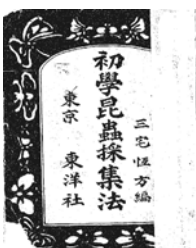 三宅恒方編
初學昆蟲採集法
東京 東洋社